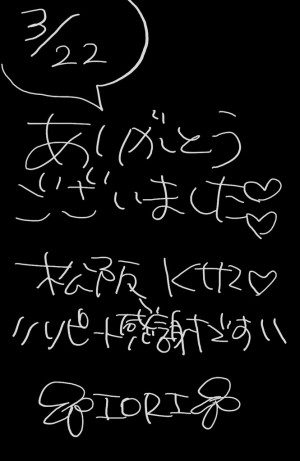 3/22
ありがとう
ございました♡♡
松阪 Kサマ♡
\\リピート感謝です//
IORI